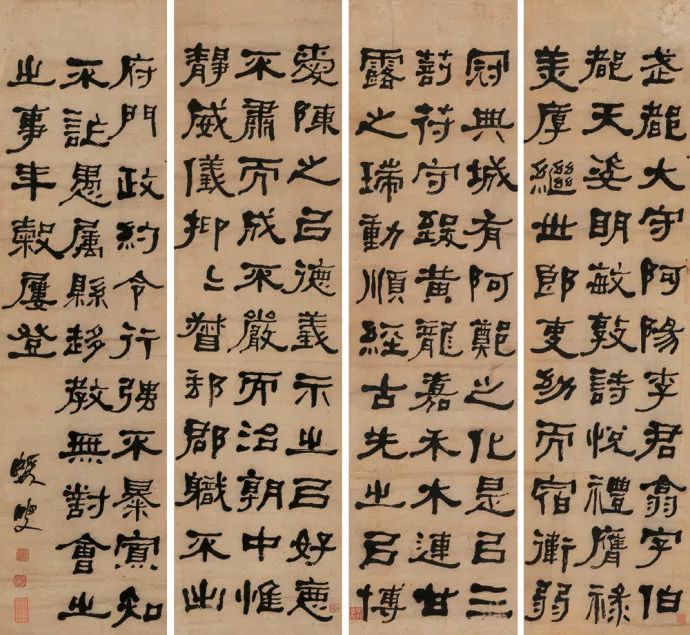 武都大守阿陽李君翕字伯
都天姿明敏敦詩悅禮膺祿
美厚繼世郎吏幼而宿衛弱
冠典城有阿鄭之化是㠯三
莂苻守致黃龍嘉禾木連甘
露之瑞動順經古先之㠯博
愛陳之㠯德義示之㠯好惡
不肅而成不嚴而治朝中惟
靜威儀抑〻督郵郡職不出
府門政約令行強不暴寡知
不詐愚屬縣趍教無對會之
之事年穀屢登
蝯叟